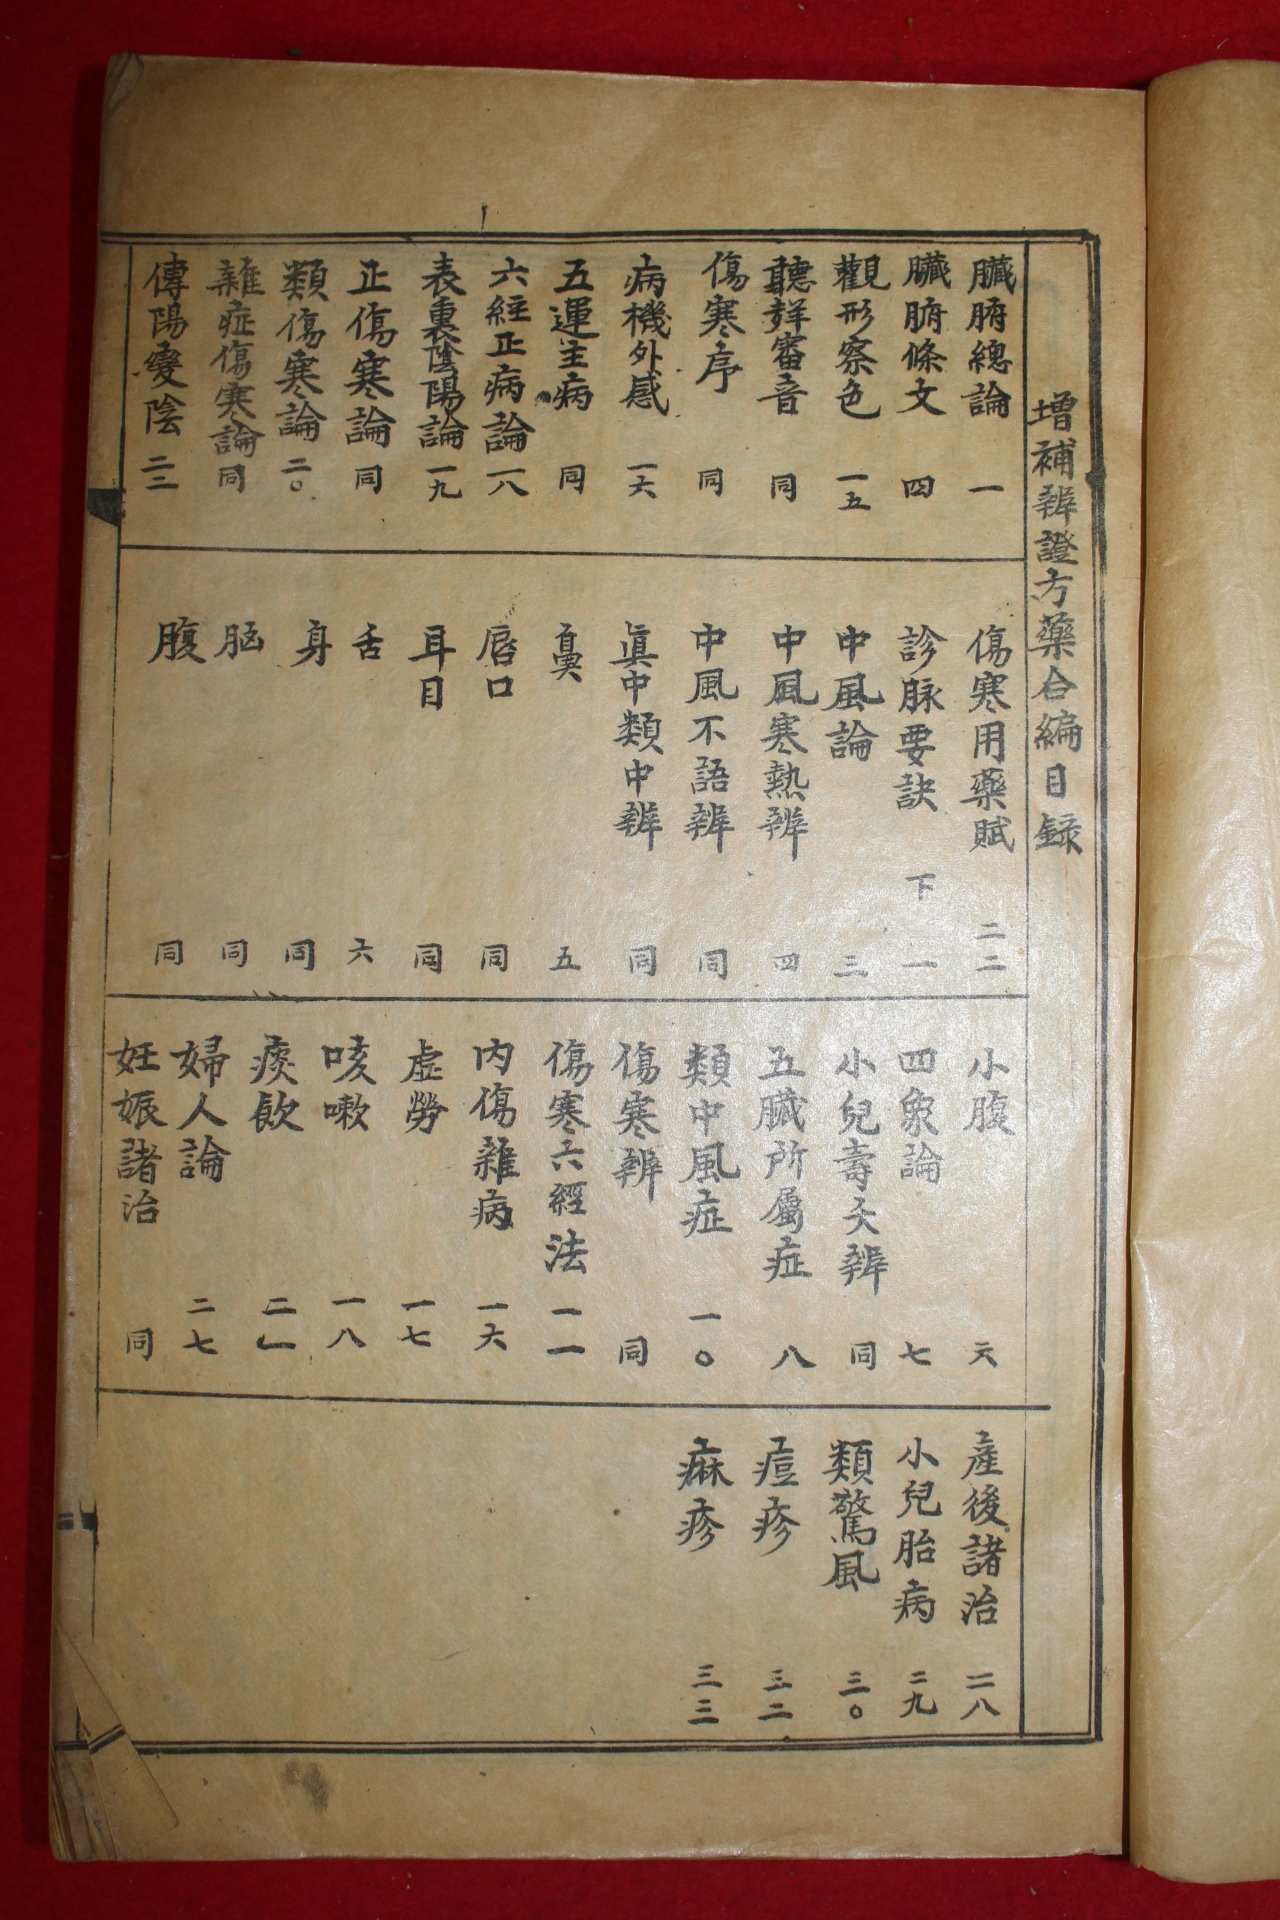 增補辨證方藥合編目録
臟腑總論 一
臟腑條文 四
觀形察色 一五
聽聲審音 同
傷寒序 同
病機外感 一六
五運主病 同
六経正病論 一八
表裏陰陽論 一九
正傷寒論 同
類傷寒論 二〇
雜症傷寒論 同
傳陽變陰 二三
傷寒用藥賦 二二
診脉要訣 下 一
中風論 三
中風寒熱辨 四
中風不語辨 同
眞中類中辨 同
鼻 五
唇口 同
耳目 同
舌 六
身 同
胸 同
腹 同
小腹 六
四象論 七
小兒壽夭辨 同
五臟所屬症 八
類中風症 一〇
傷寒辨 同
傷寒六經法 一一
內傷雜病 一六
虛勞 一七
咳嗽 一八
痰飮 二一
婦人論 二七
妊娠諸治 同
產後諸治 二八
小兒胎病 二九
類驚風 三〇
痘疹 三二
麻疹 三三